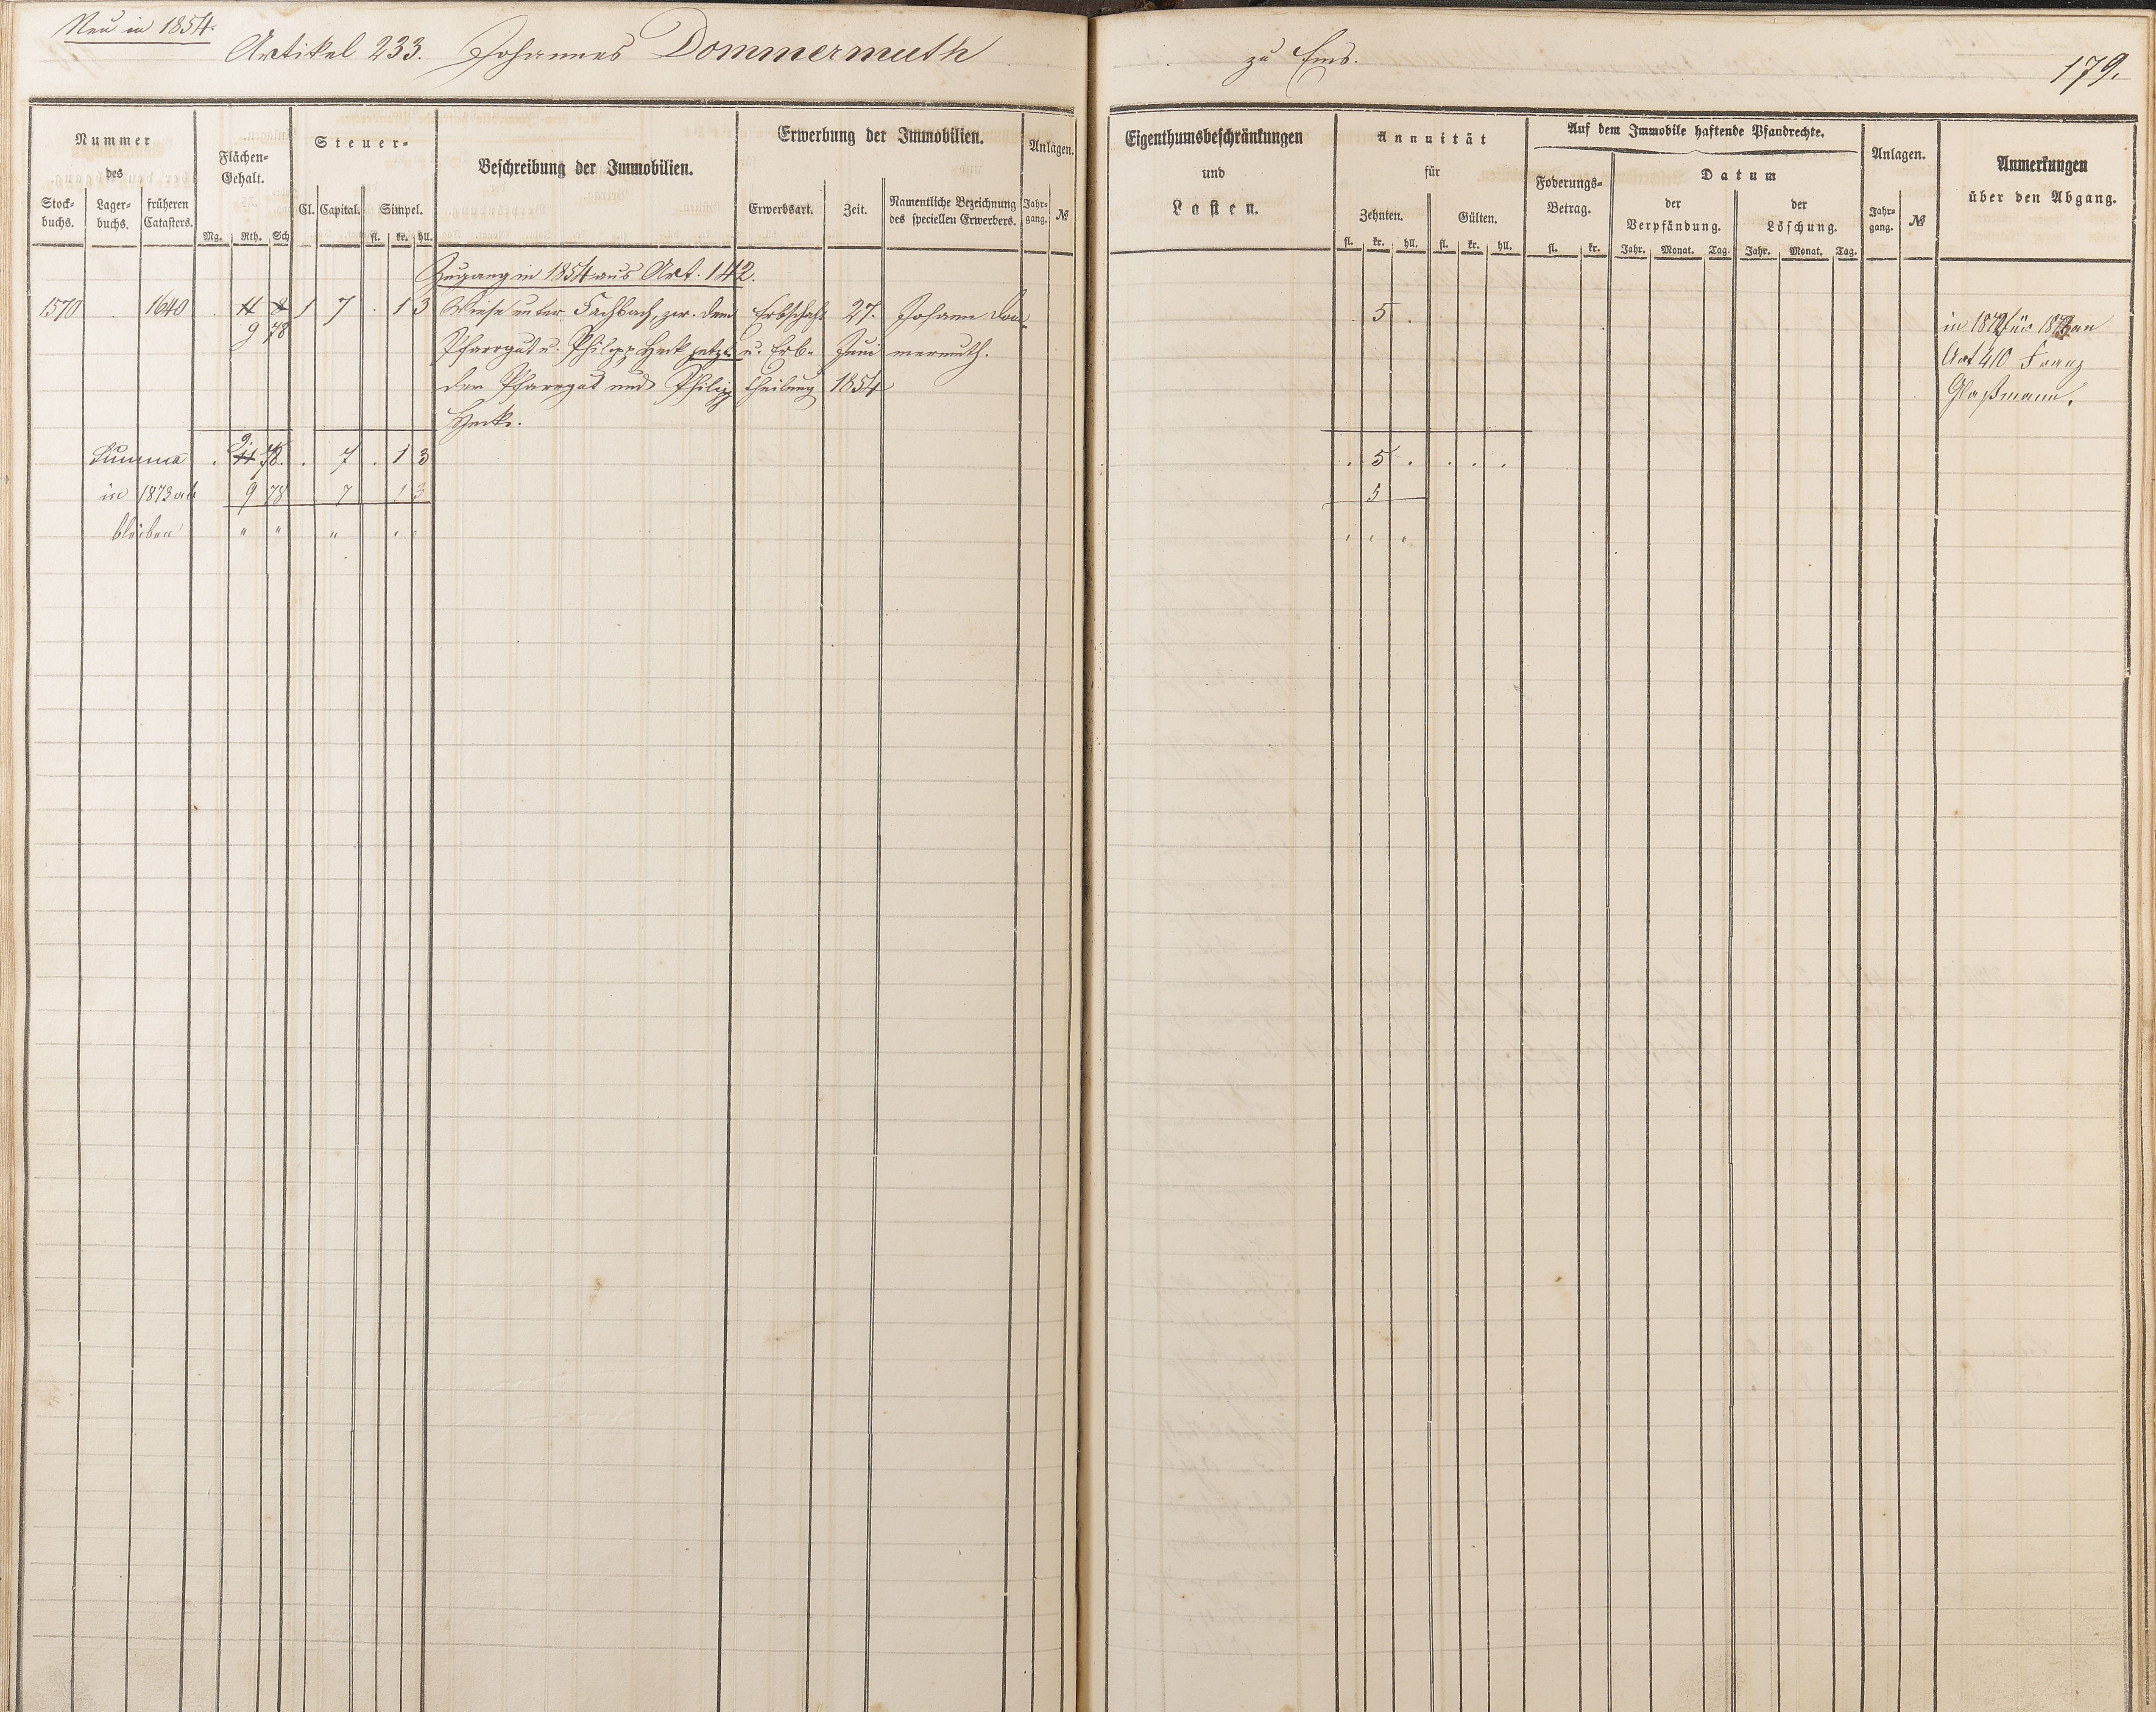 Neu in 1854.
Artikel 233. Johannes Dommermuth zu Ems. 179.
Nummer des
Stock-buchs. Lager-buchs. früheren Catasters.
Flächen-Gehalt.
Mg. Rth. Sch.
Steuer-
Cl. Capital. Simpel.
fl. kr. hll.
Beschreibung der Immobilien.
Erwerbung der Immobilien.
Erwerbsart. Zeit. Namentliche Bezeichnung des speciellen Erwerbers.
Anlagen.
Jahr-gang. №
Eigenthumsbeschränkungen
und
Lasten.
Annuität
für
Zehnten. Gülten.
fl. kr. hll. fl. kr. hll.
Auf dem Immobile haftende Pfandrechte.
Foderungs-Betrag.
fl. kr.
Datum
der Verpfändung. der Löschung.
Jahr. Monat. Tag. Jahr. Monat. Tag.
Anlagen.
Jahr-gang. №
Anmerkungen
über den Abgang.
Zugang in 1854 aus Art. 142.
1570 . 1640 . 11 8 1 7 . 1 3 Wiese unter Fachbach, zw. dem Erbschaft 27. Johann Dom- . 5 .
9 78
Pfarrgut u. Philipp Heck jetzt u. Erb- Juni mermuth.
der Pfarrgut und Philipp theilung 1854
Heck.
in 1872 für 1873 an
Art 410 Franz
Glaßmann.
9.
Summa . 11 78. . 7 . 1 3 . 5 . . . .
in 1873 ab 9 78 7 1 3 5
bleiben " " " " "